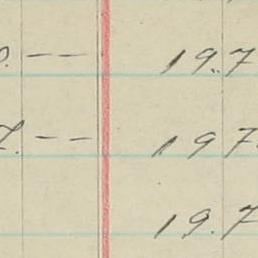 — — 19.7
7. — — 197
19.7